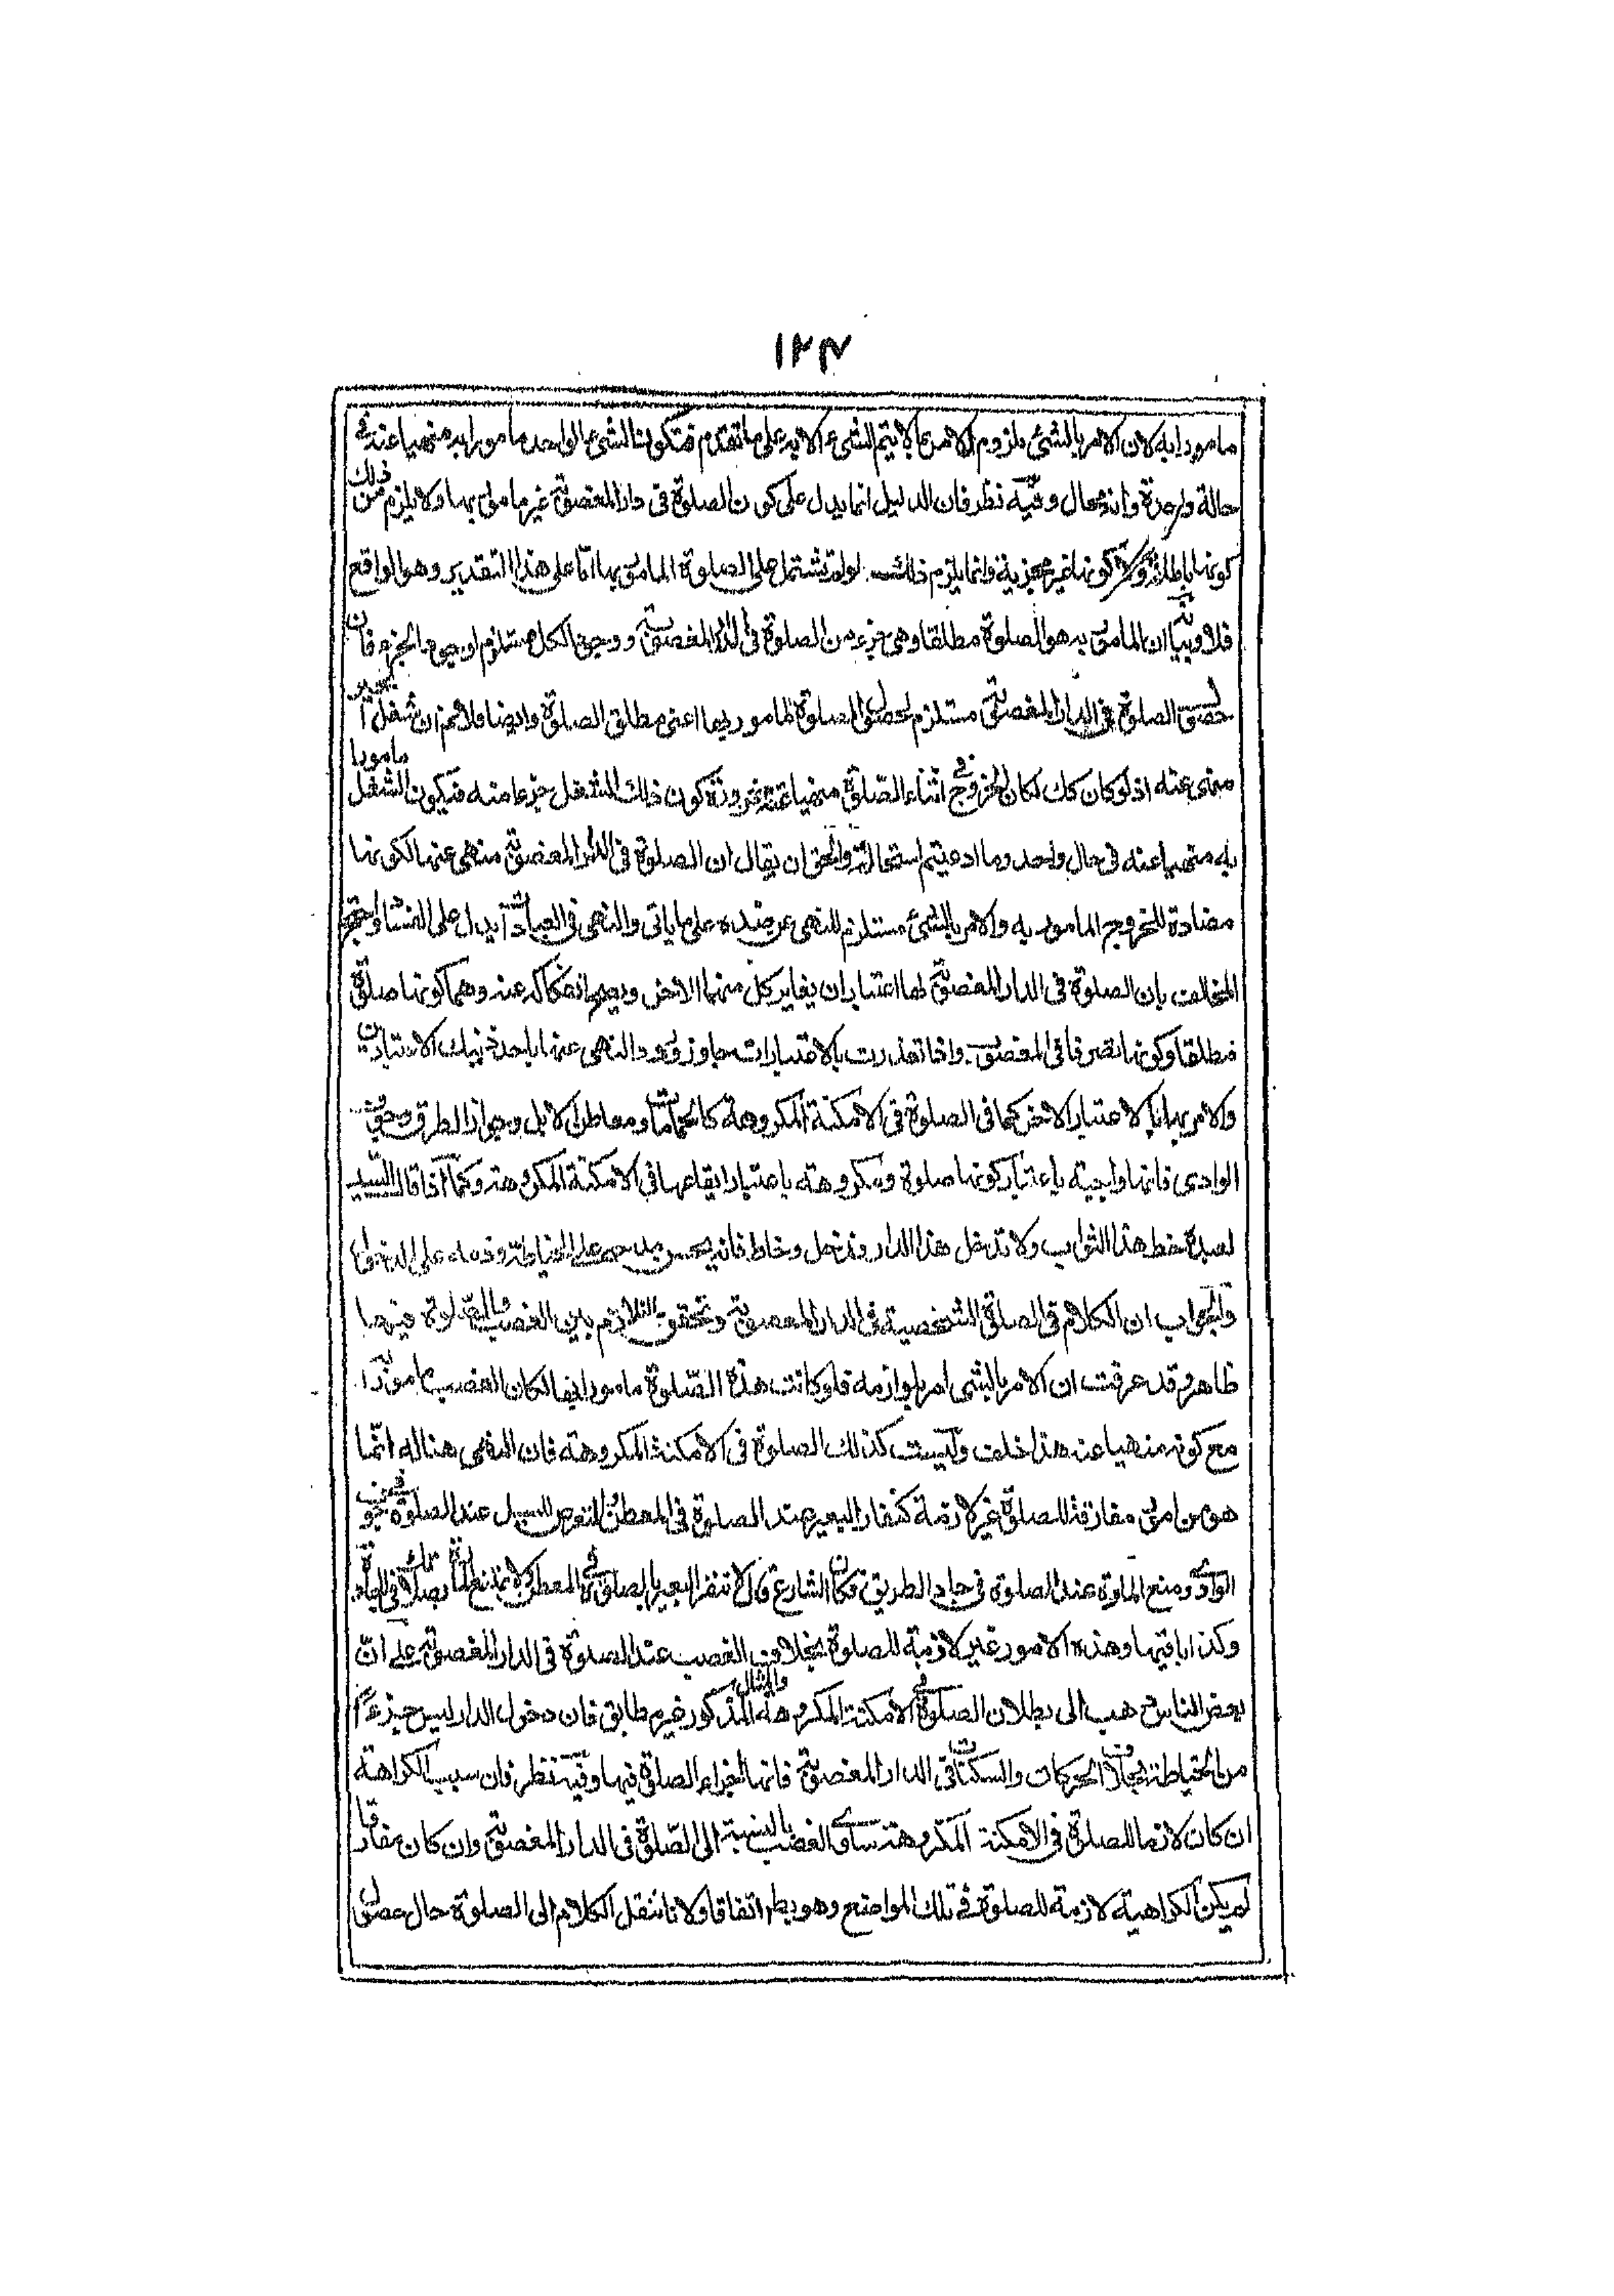 ١٢٣
مامورا به لان الامر بالشئ يلزم الامر بما لا يتم الشئ الا به على ما تقدم فتكون الشئ الواحد مامورا به منهيا عنه في
حالة واحدة وانه محال وفيه نظر فان الدليل انما يدل على كون الصلوة فى دار المغصوبة غير مامور بها ولا يلزم من ذلك
كونها باطلة ولا كونها غير مجزية وانما يلزم ذلك لو لم تشتمل على الصلوة المامور بها اما على هذا التقدير وهو الواقع
فلا وبيانه ان المامور به هو الصلوة مطلقا وهى جزء من الصلوة فى الدار المغصوبة ووجود الكل مستلزم لوجود الجزء فان
حصول الصلوة فى الدار المغصوبة مستلزم لحصول الصلوة المامور بها اعنى مطلق الصلوة وايضا فلانم ان شغل الحيز
منهى عنه اذ لو كان كك لكان الخروج فى اثناء الصلوة منهيا عنه ضرورة كون ذلك الشغل جزءا منه فتكون الشغل مامورا
به منهيا عنه فى حال واحد وما ادعيتم استحالته والحق ان يقال ان الصلوة فى الدار المغصوبة منهى عنها لكونها
مضادة للخروج المامور به والامر بالشئ مستلزم للنهى عن ضده على ما ياتى والنهى فى العبادات يدل على الفساد احتج
المخالف بان الصلوة فى الدار المغصوبة لها اعتباران يغاير كل منهما الاخر ويصح انفكاكه عنه وهما كونها صلوة
مطلقا وكونها تصرفا فى المغصوب واذا تعددت بالاعتبارات جاز ورود النهى عنها باحد ذينك الاعتبارين
والامر بها بالاعتبار الاخر كما فى الصلوة فى الامكنة المكروهة كالحمامات ومعاطن الابل وجواد الطرق وجوف
الوادى فانها واجبة باعتبار كونها صلوة ومكروهة باعتبار ايقاعها فى الامكنة المكروهة وكما اذا قال السيد
لعبده خط هذا الثوب ولا تدخل هذا الدار فدخل وخاط فانه يحسن مدحه على الخياطة وذمه على الدخول
والجواب ان الكلام فى الصلوة الشخصية فى الدار المغصوبة وتحقق التلازم بين الغصب والصلوة فيها
ظاهر وقد عرفت ان الامر بالشئ امر بلوازمه فلو كانت هذه الصلوة مامورا بها لكان الغصب مامورا
مع كونه منهيا عنه هذا خلف وليست كذلك الصلوة فى الامكنة المكروهة فان النهى هناك انما
هو عن امور مفارقة للصلوة غير لازمة كنفار البعير عند الصلوة فى المعطن والتعرض للسيل عند الصلوة فى جوف
الوادى ومنع المارة عند الصلوة فى جادة الطريق فكان الشارع قال لا تنفر البعير بالصلوة فى المعطن ولا تمنع المارة بصلاتك فى الجادة
وكذا باقيها وهذه الامور غير لازمة للصلوة بخلاف الغصب عند الصلوة فى الدار المغصوبة على ان
بعض الناس ذهب الى بطلان الصلوة فى الامكنة المكروهة والمثال المذكور غير مطابق فان دخول الدار ليس جزءا
من الخياطة بخلاف الحركات والسكنات فى الدار المغصوبة فانها اجزاء الصلوة فيها وفيه نظر فان سبب الكراهة
ان كان لازما للصلوة فى الامكنة المكروهة ساوى الغصب بالنسبة الى الصلوة فى الدار المغصوبة وان كان مفارقا
لم يكن الكراهية لازمة للصلوة فى تلك المواضع وهو بط اتفاقا ولانا ننقل الكلام الى الصلوة حال حصول